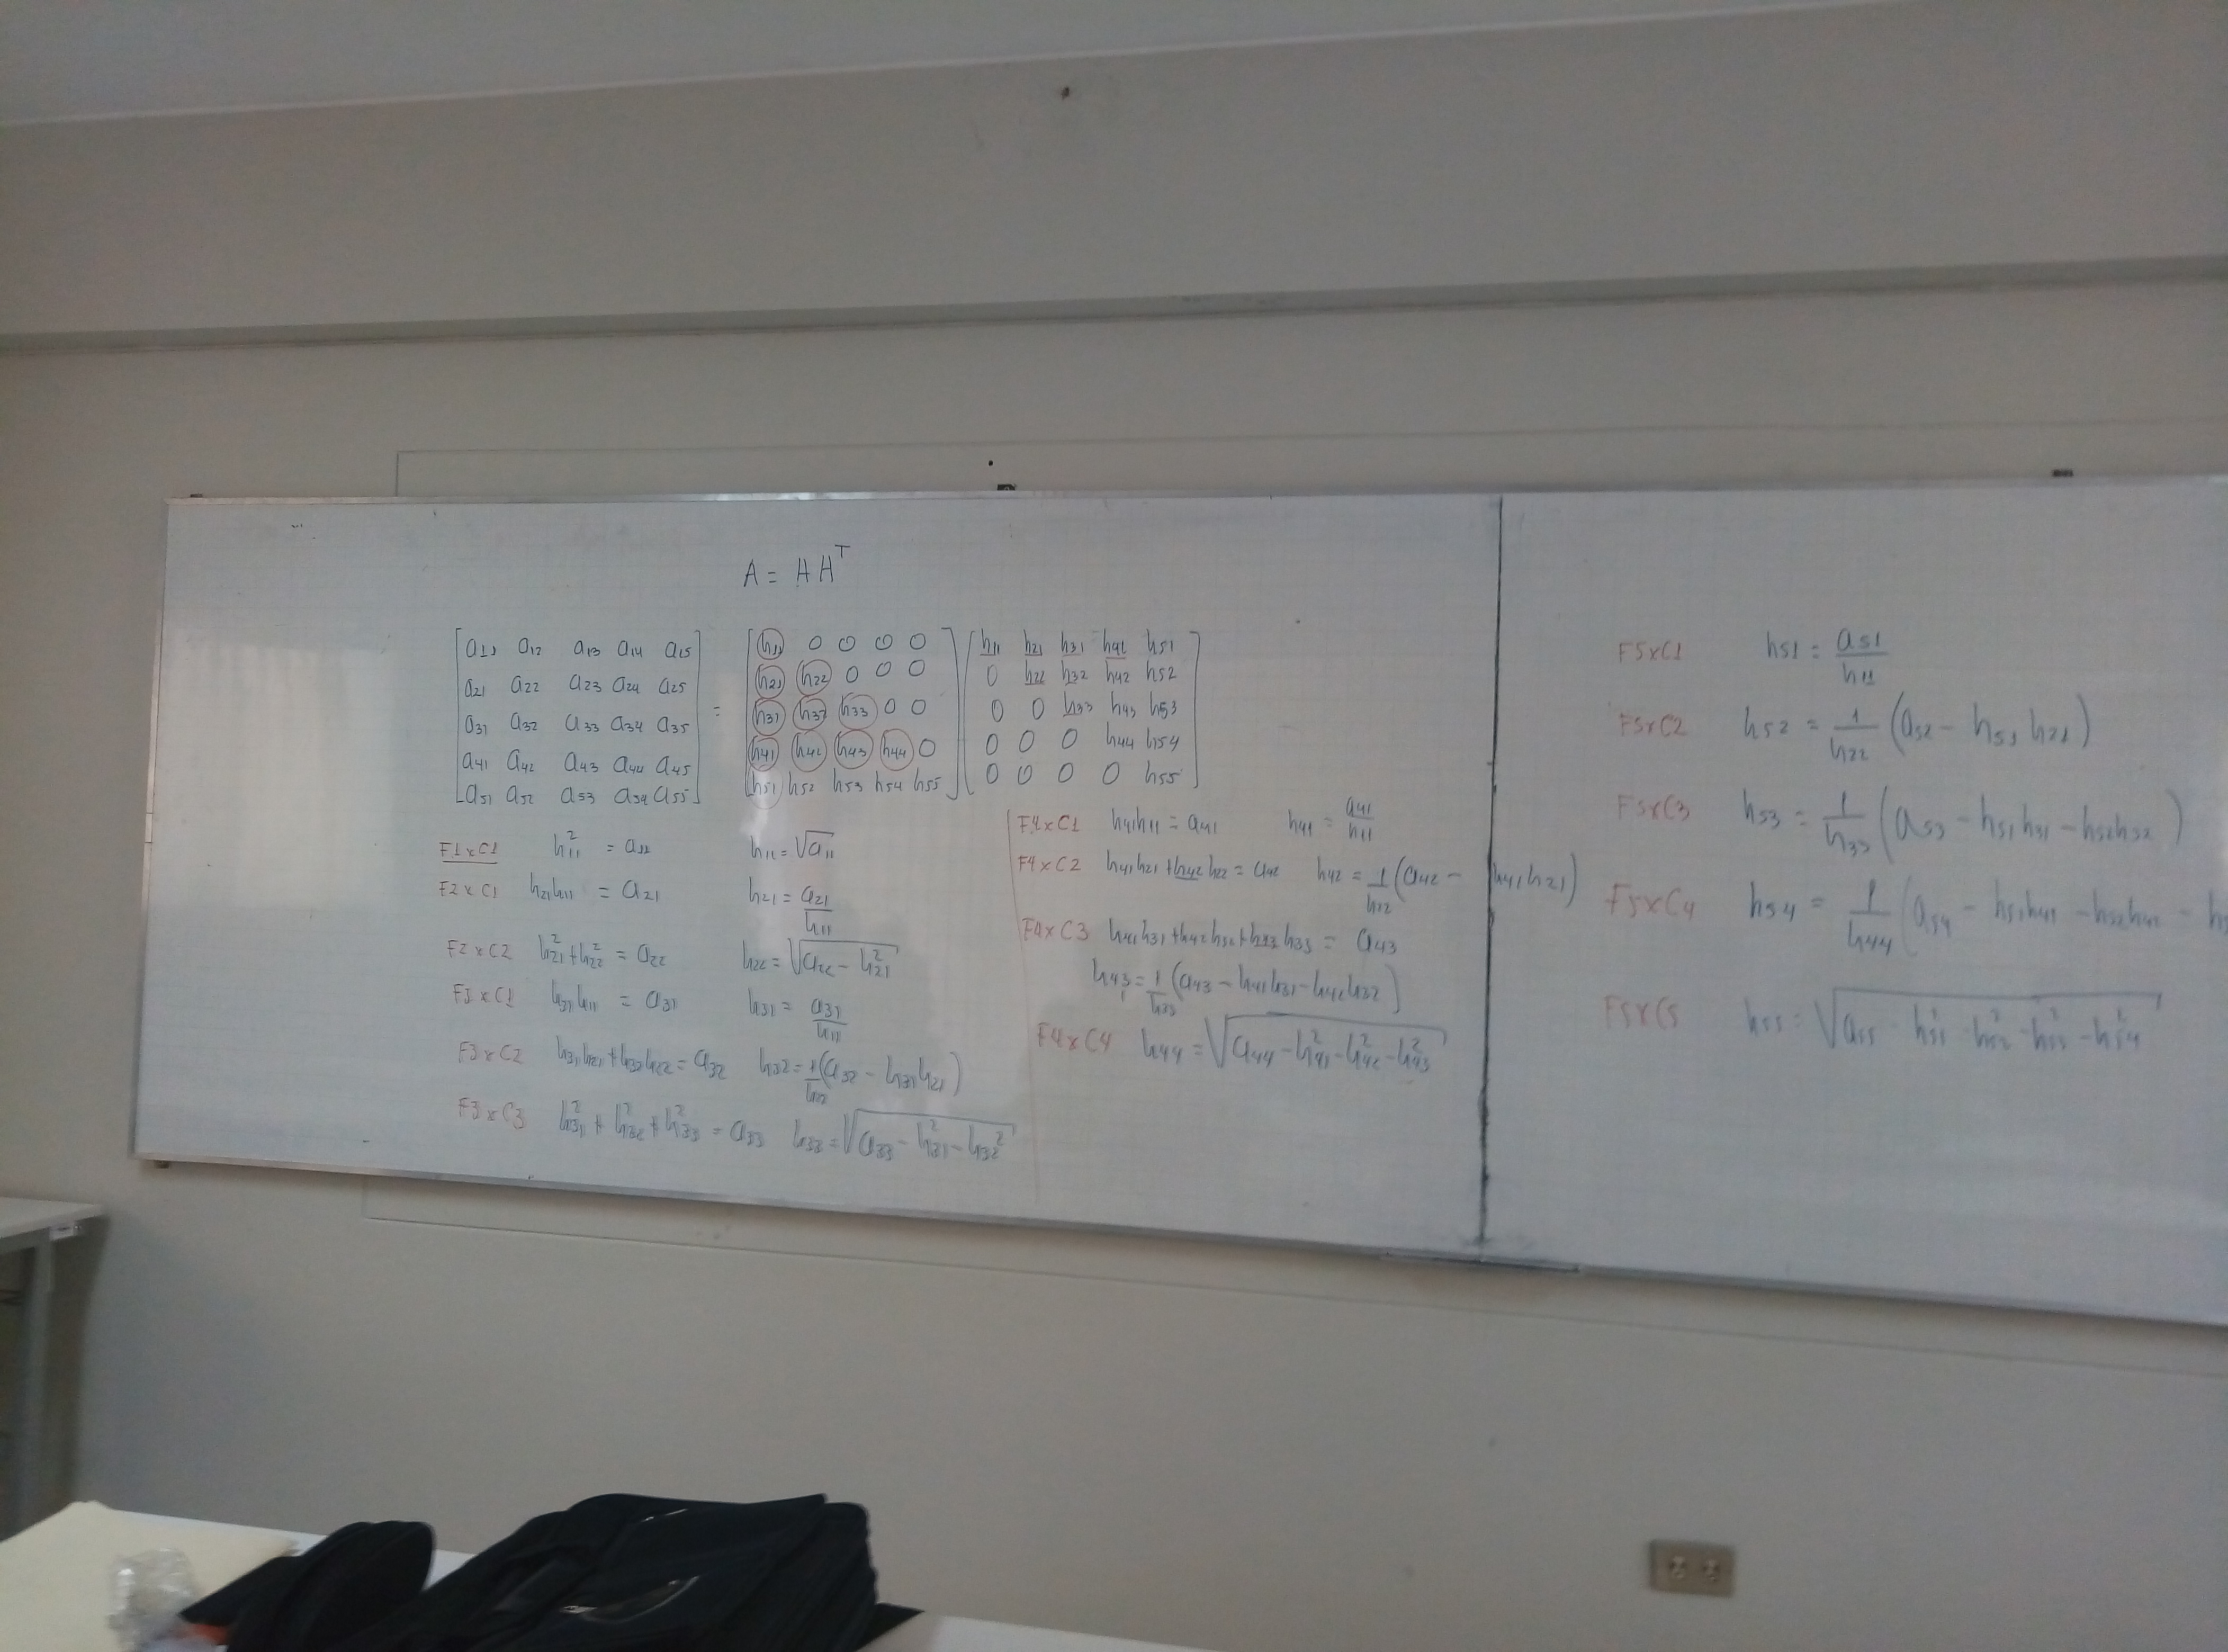 A = H Hᵀ
[a11 a12 a13 a14 a15] = [h11 0 0 0 0] [h11 h21 h31 h41 h51]
[a21 a22 a23 a24 a25] [h21 h22 0 0 0] [0 h22 h32 h42 h52]
[a31 a32 a33 a34 a35] [h31 h32 h33 0 0] [0 0 h33 h43 h53]
[a41 a42 a43 a44 a45] [h41 h42 h43 h44 0] [0 0 0 h44 h54]
[a51 a52 a53 a54 a55] [h51 h52 h53 h54 h55] [0 0 0 0 h55]
F1xC1 h11² = a11 h11 = √a11
F2xC1 h21h11 = a21 h21 = a21/h11
F2xC2 h21² + h22² = a22 h22 = √(a22 - h21²)
F3xC1 h31h11 = a31 h31 = a31/h11
F3xC2 h31h21 + h32h22 = a32 h32 = 1/h22 (a32 - h31h21)
F3xC3 h31² + h32² + h33² = a33 h33 = √(a33 - h31² - h32²)
F4xC1 h41h11 = a41 h41 = a41/h11
F4xC2 h41h21 + h42h22 = a42 h42 = 1/h22 (a42 - h41h21)
F4xC3 h41h31 + h42h32 + h33 = a43
h43 = 1/h33 (a43 - h41h31 - h42h32)
F4xC4 h44 = √(a44 - h41² - h42² - h43²)
F5xC1 h51 = a51/h11
F5xC2 h52 = 1/h22 (a52 - h51h21)
F5xC3 h53 = 1/h33 (a53 - h51h31 - h52h32)
F5xC4 h54 = 1/h44 (a54 - h51h41 - h52h42 -
F5xC5 h55 = √(a55 - h51² - h52² - h53² - h54²)